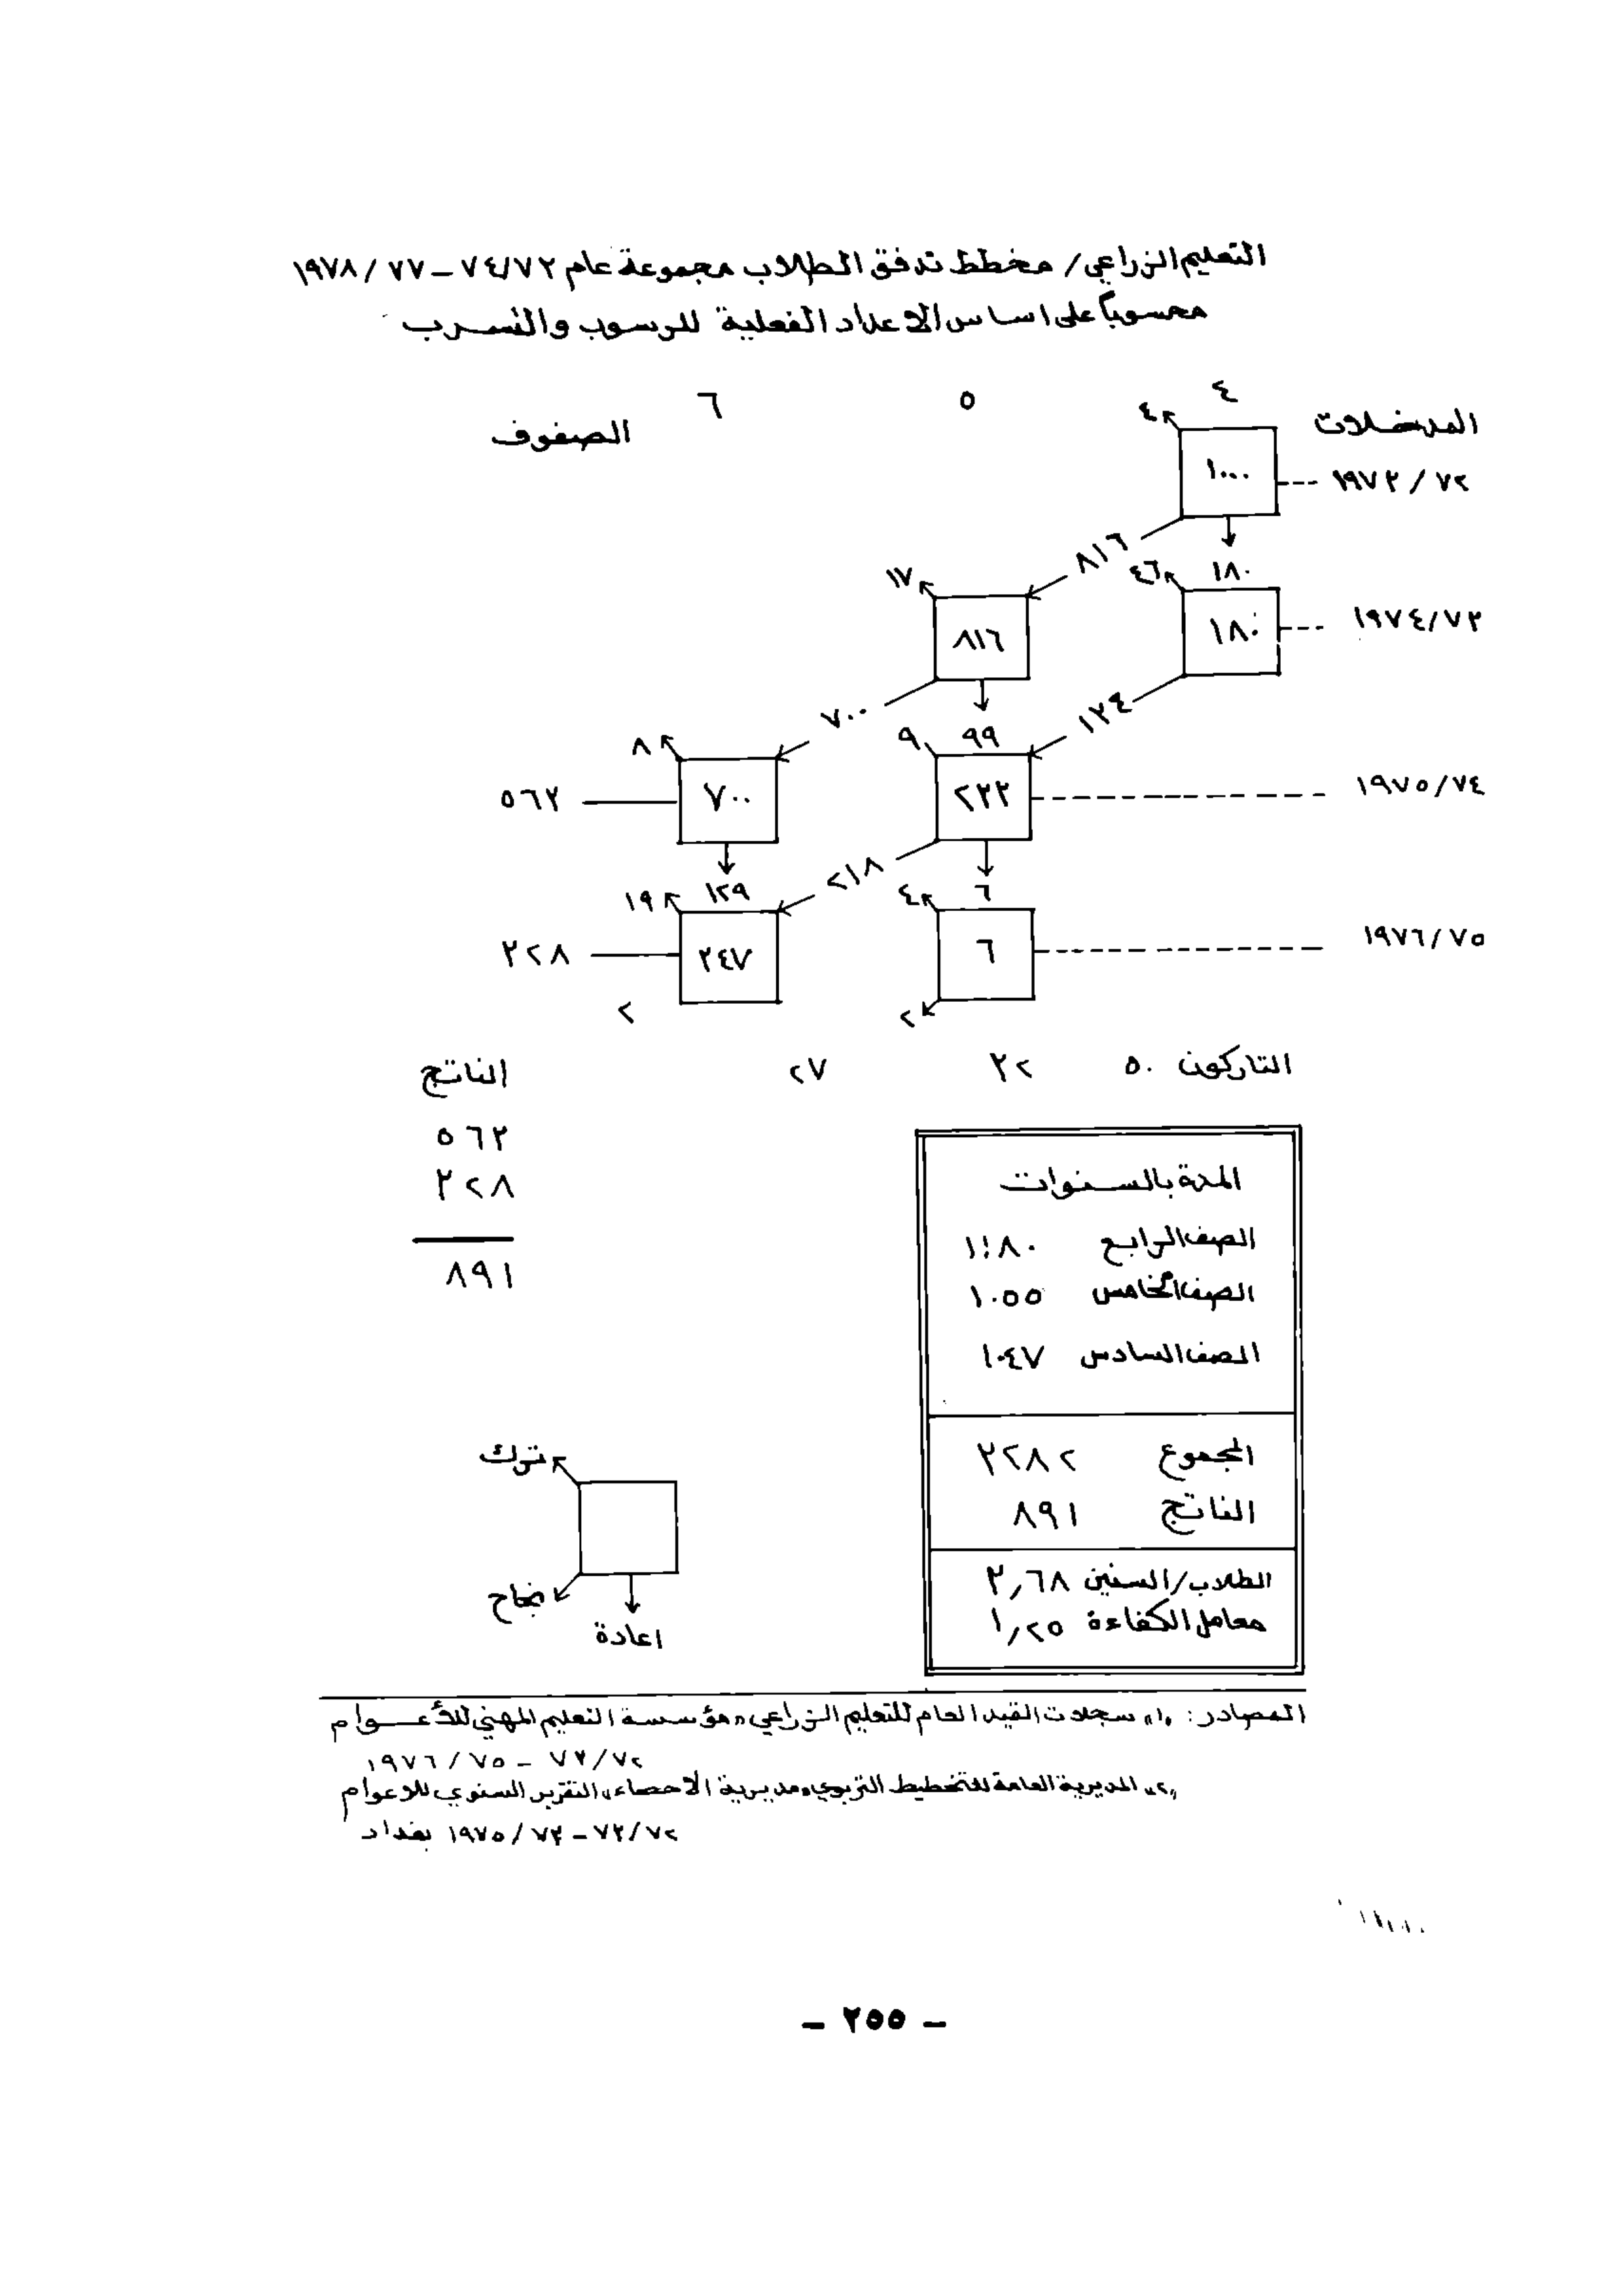 التعليم الزراعي / مخطط تدفق الطلاب مجموعة عام ٧٤/٧٣ – ١٩٧٨/٧٧
محسوباً على اساس الاعداد الفعلية للرسوب والتسرب
٤ ٥ ٦
المدخلات الصفوف
٤
١٩٧٣/٧٢ ١٠٠٠
٨١٦
١٨٠ ٤٦ ١٧
١٩٧٤/٧٣ ١٨٠ ٨١٦
١٣٤ ٧٠٠
٩٩ ٩ ٨
١٩٧٥/٧٤ ٢٣٣ ٧٠٠ ٥٦٣
٢١٨
٦ ٤ ١٢٩ ١٩
١٩٧٦/٧٥ ٦ ٣٤٧ ٣٢٨
٢ ٢
التاركون ٥٠ ٣٢ ٢٧ الناتج
٥٦٣
٣٢٨
٨٩١
المدة بالسنوات
الصف الرابع ١١٨٠
الصف الخامس ١٠٥٥
الصف السادس ١٠٤٧
المجموع ٣٢٨٢
الناتج ٨٩١
الطلاب/السنين ٣,٦٨
معامل الكفاءة ١,٢٥
ترك
نجاح
اعادة
المصادر: «١» سجلات القيد العام للتعليم الزراعي «مؤسسة التعليم المهني للأعوام
٧٣/٧٢ – ١٩٧٦/٧٥
«٢» المديرية العامة للتخطيط التربوي، مديرية الاحصاء، التقرير السنوي للاعوام
٧٣/٧٢ – ١٩٧٥/٧٣ بغداد
– ٢٥٥ –